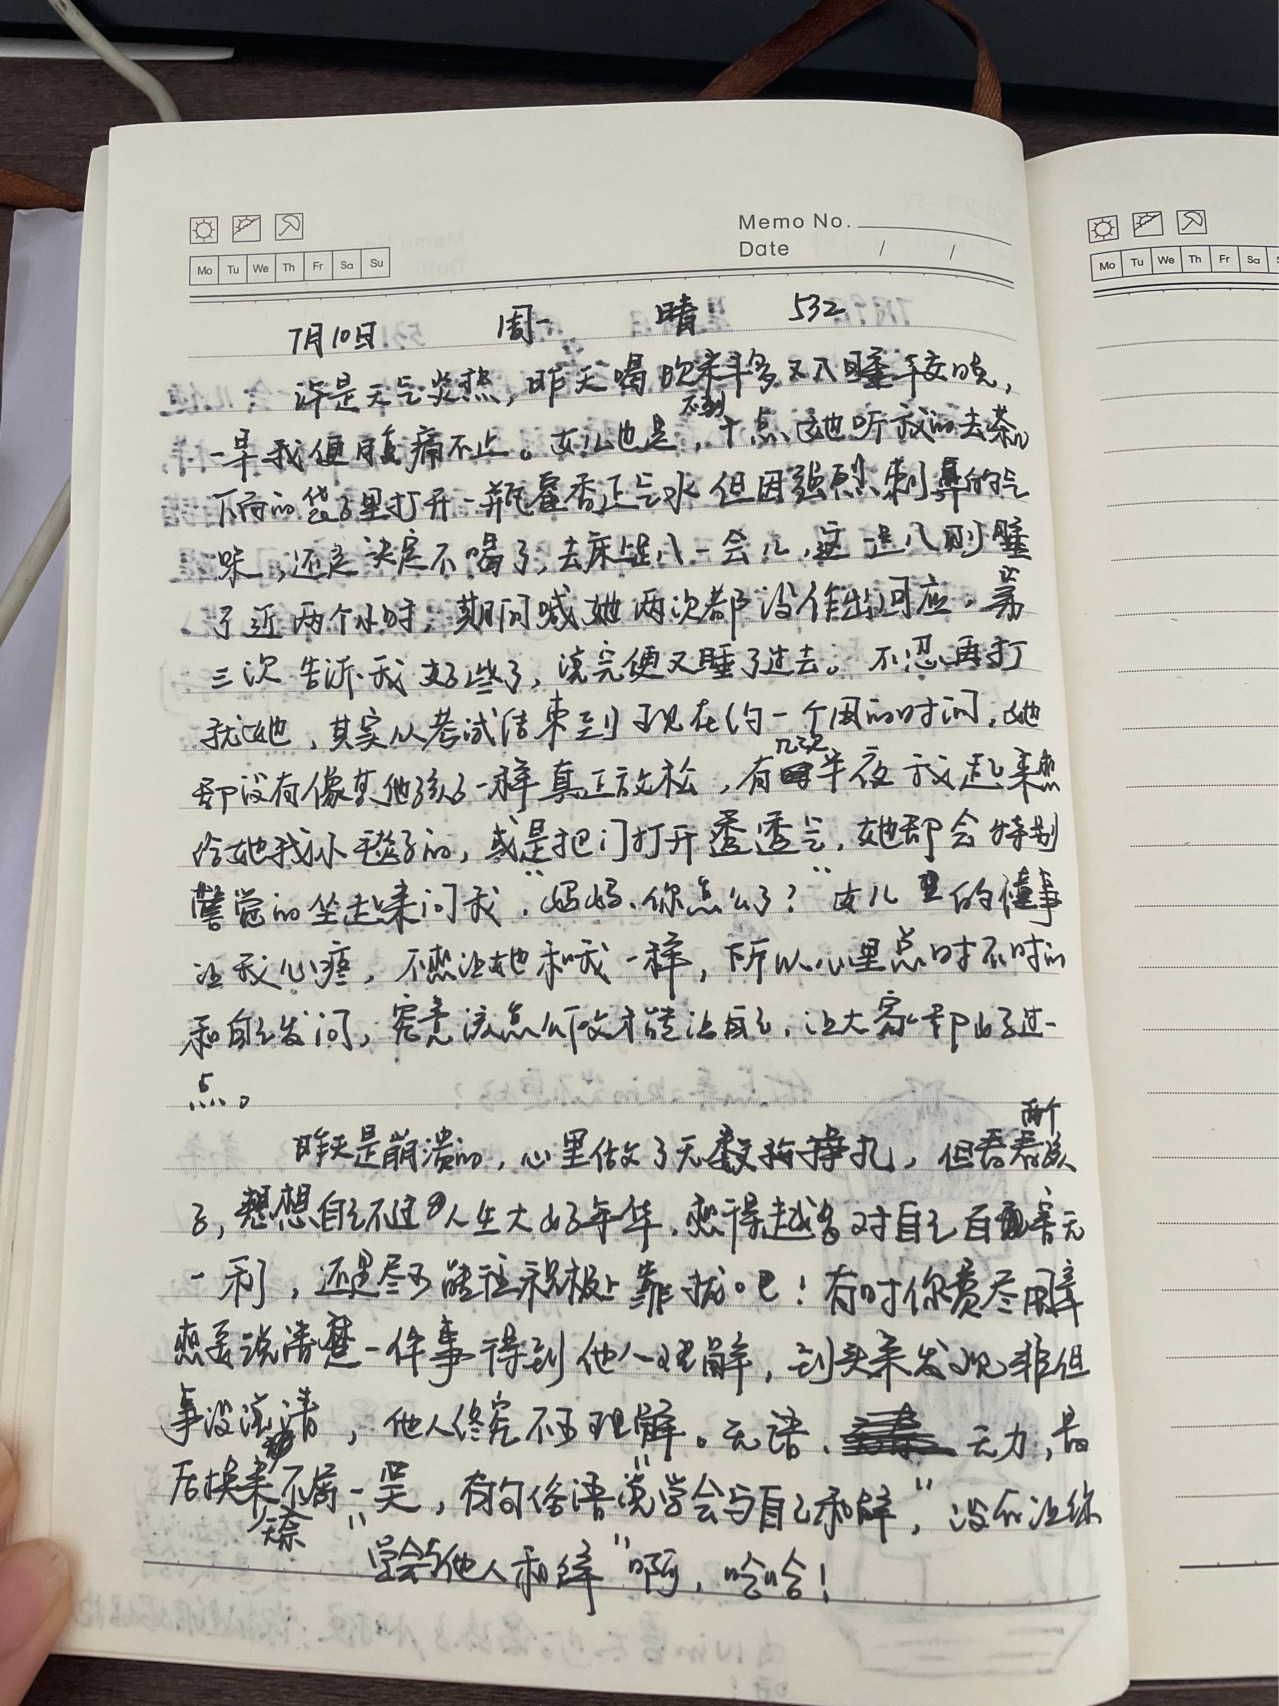 Memo No.
Date / /
Mo Tu We Th Fr Sa Su
7月10日 周一 晴 532
许是天气炎热,昨天喝饮料多又入睡较晚,
一早我便腹痛不止。女儿也是,不到十点她听我的去茶几
下面的袋子里打开一瓶藿香正气水但因强烈刺鼻的气
味,还是决定不喝了,去床上趴一会儿,这一趴则睡
了近两个小时,期间喊她两次都没作出回应,第
三次告诉我好些了,说完便又睡了过去。不忍再打
扰她,其实从考试结束到现在约一个周的时间,她
都没有像其他孩子一样真正放松,有几次半夜我起来
给她找小毯子的,或是把门打开透透气,她都会特别
警觉的坐起来问我,“妈妈,你怎么了?”女儿的懂事
让我心疼,不想让她和我一样,所以心里总时不时的
和自己发问,究竟该怎么做才能让自己,让大家都好过一
点。
昨天是崩溃的,心里做了无数种挣扎,但看看两个孩
子,想想自己不过人生大好年华,想得越多对自己百害无
一利,还是尽可能往积极上靠拢吧!有时你费尽口舌
想要说清楚一件事得到他人理解,到头来发现非但
事没说清,他人终究不可理解。无语、无力,最
后换来不屑一笑,有句俗语“说学会与自己和解”,没有让你
“学会与他人和解”啊,哈哈!
Mo Tu We Th Fr Sa